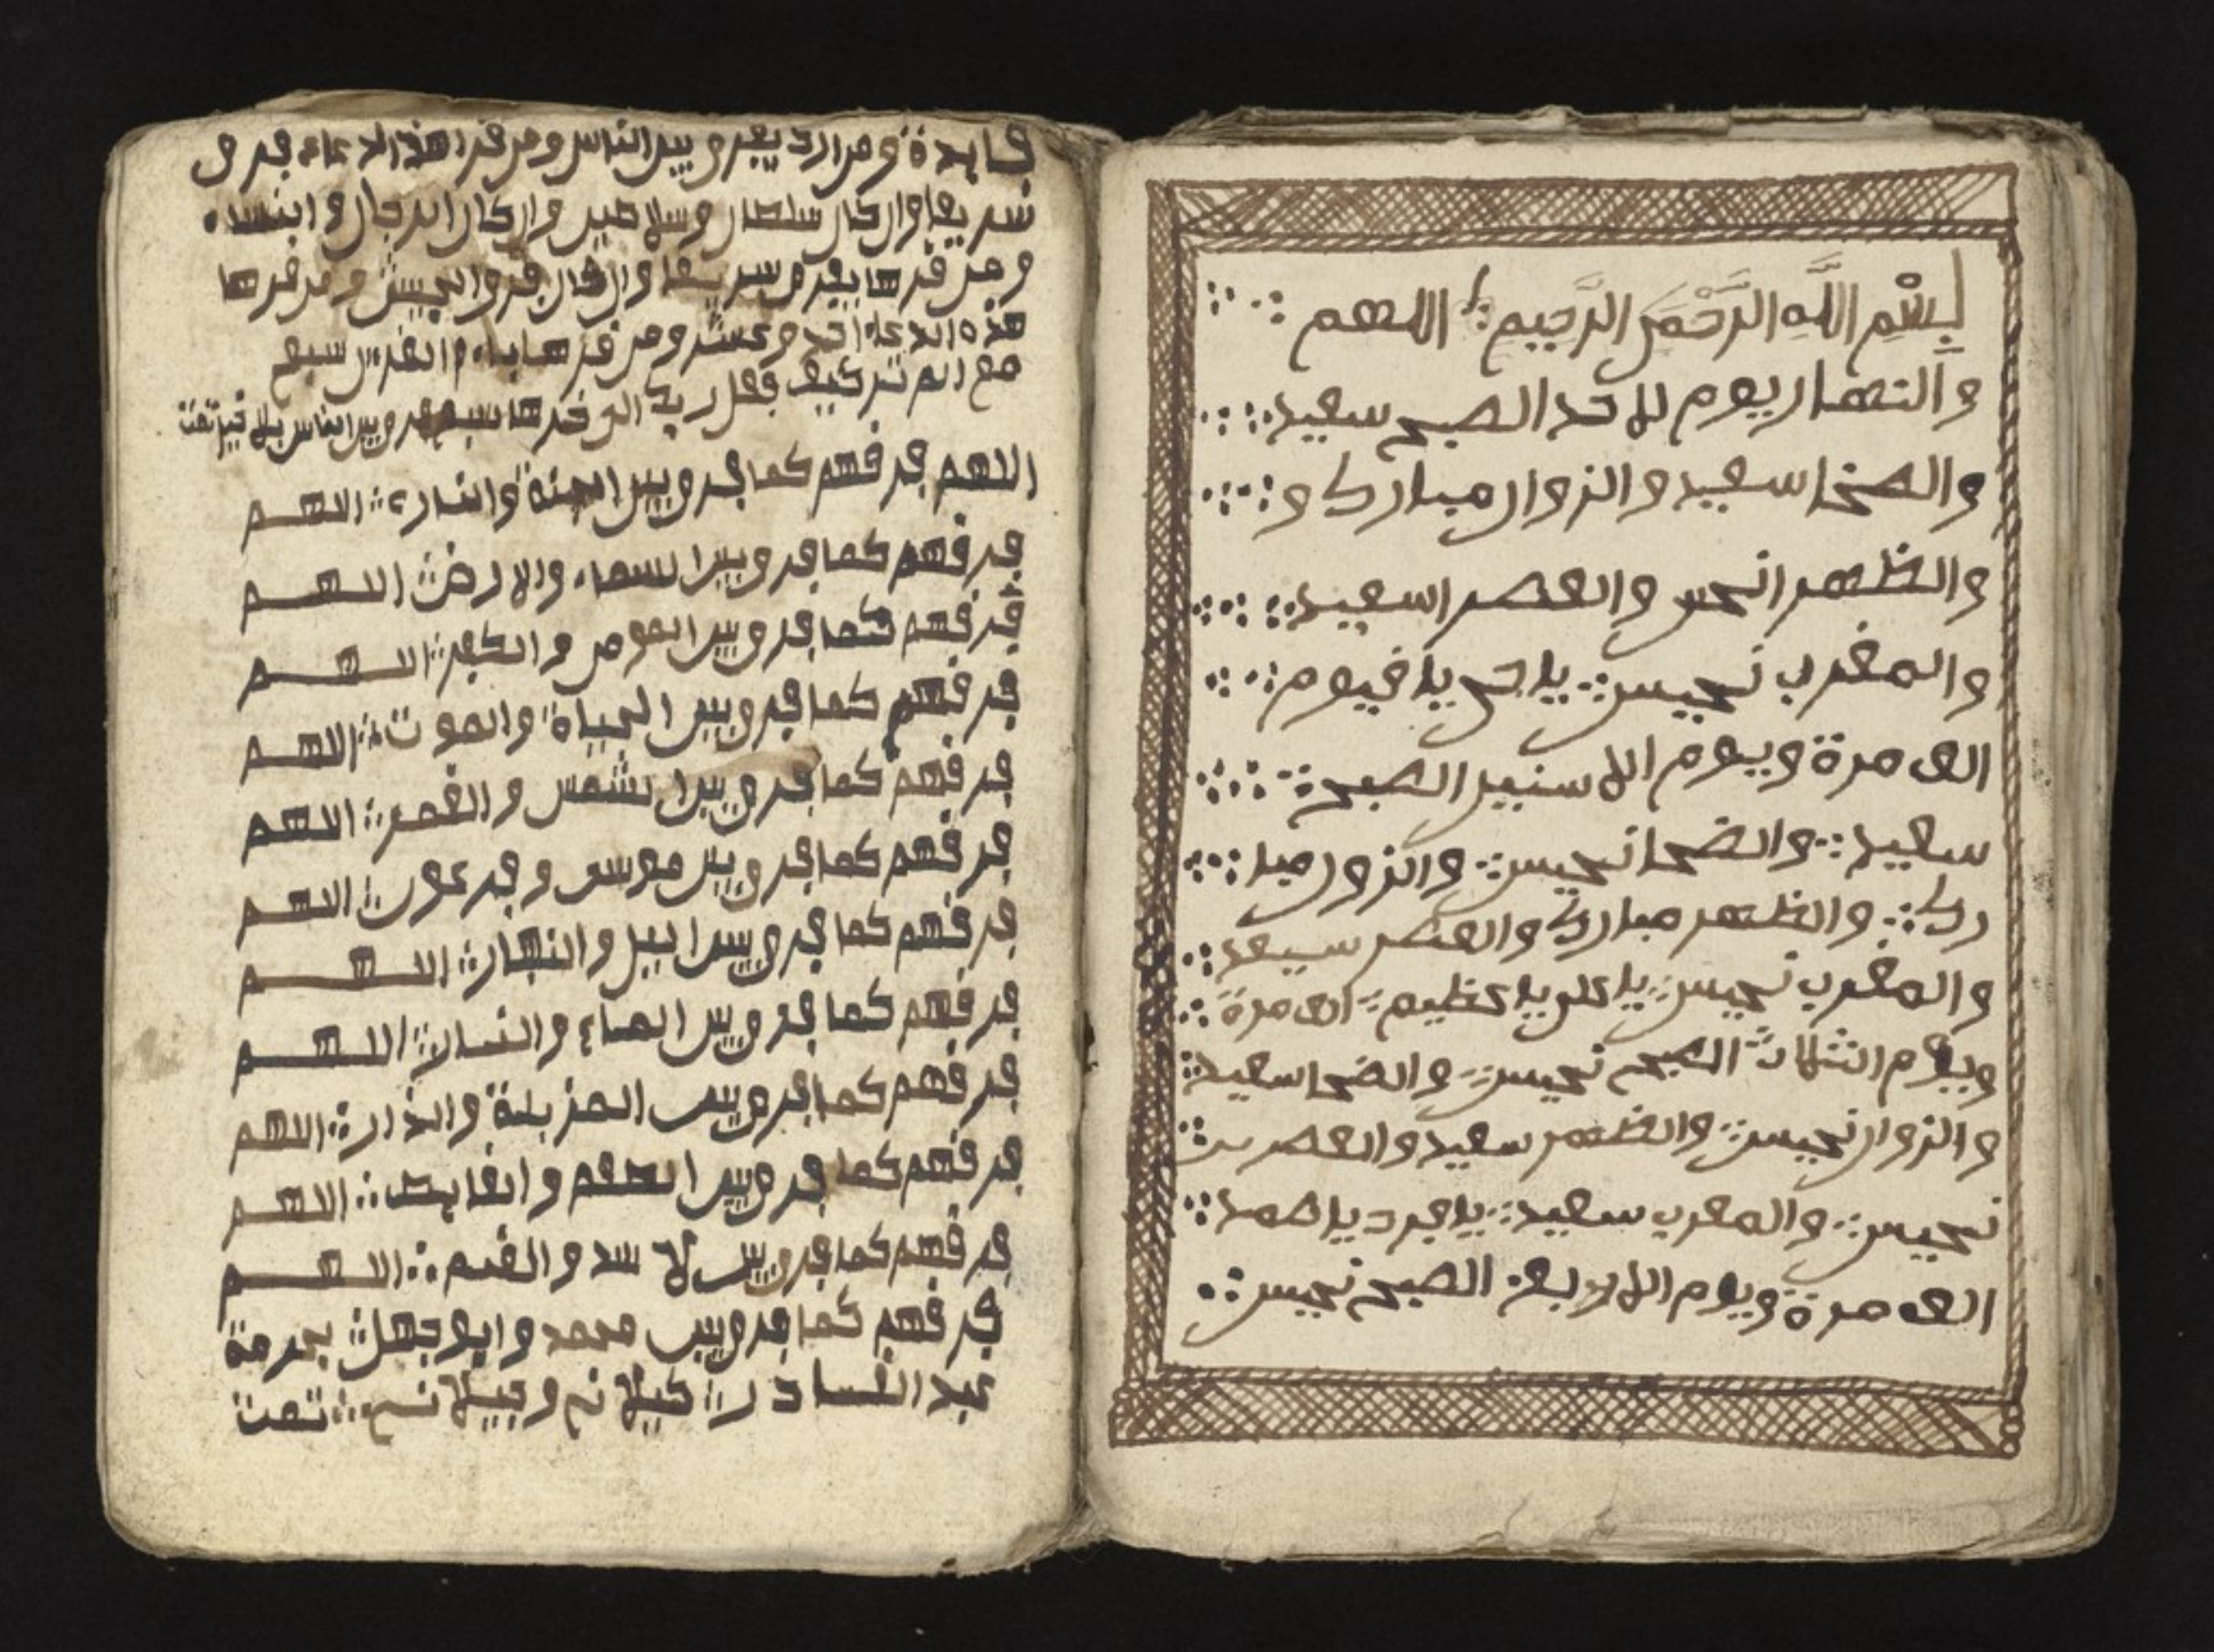 بِسْمِ اللَّهِ الرَّحْمَنِ الرَّحِيمِ اللهم
والنهار يوم للاحد الصبح سعيد
والضحا سعيد والزوار مبارك و
والظهر انحس والعصر اسعيد
والمغرب نحيس يا حي يا فيوم
الف مرة ويوم اللا سنين الصبح
سعيد والضحا نحيس والزور مبا
رك والظهر مبارك والعصر سيعد
والمغرب نحيس يا علي يا عظيم الف مرة
ويوم الثلاث الصبح نحيس والضحا سعيد
والزوار نحيس والظهر سعيد والعصر
نحيس والمغرب سعيد يا فرد يا صمد
الف مرة ويوم اللا ربع الصبح نحيس
فايدة ومن اراد يفرق بين الناس ومن قرا هذا الدعاء فرق
شريعا وان كان سلطان وسلاطين وان كان الرجال وانساء
ومن قرها يفرق سريعا وان قال فرق الجيش ومن قرها
هذه الدعاء احد وعشر ومن قرها
مع الم تر كيف فعل ربك وبين الناس بلا
اللهم فرقهم كما فرق بين الجنة والنار اللهم
فرقهم كما فرق بين السماء والارض اللهم
فرقهم كما فرق بين المومن والكفر اللهم
فرقهم كما فرق بين الحياة والموت اللهم
فرقهم كما فرق بين الشمس والقمر اللهم
فرقهم كما فرق بين موسى وفرعون اللهم
فرقهم كما فرق بين اليل والنهار اللهم
فرقهم كما فرق بين الماء والنار اللهم
فرقهم كما فرق بين المزبلة والذارة اللهم
فرقهم كما فرق بين الطعم والغايط اللهم
فرقهم كما فرق بين لا سد والغنم اللهم
فرقهم كما فرق بين محمد وابوجهل بحرمة
عبد القادر تمت